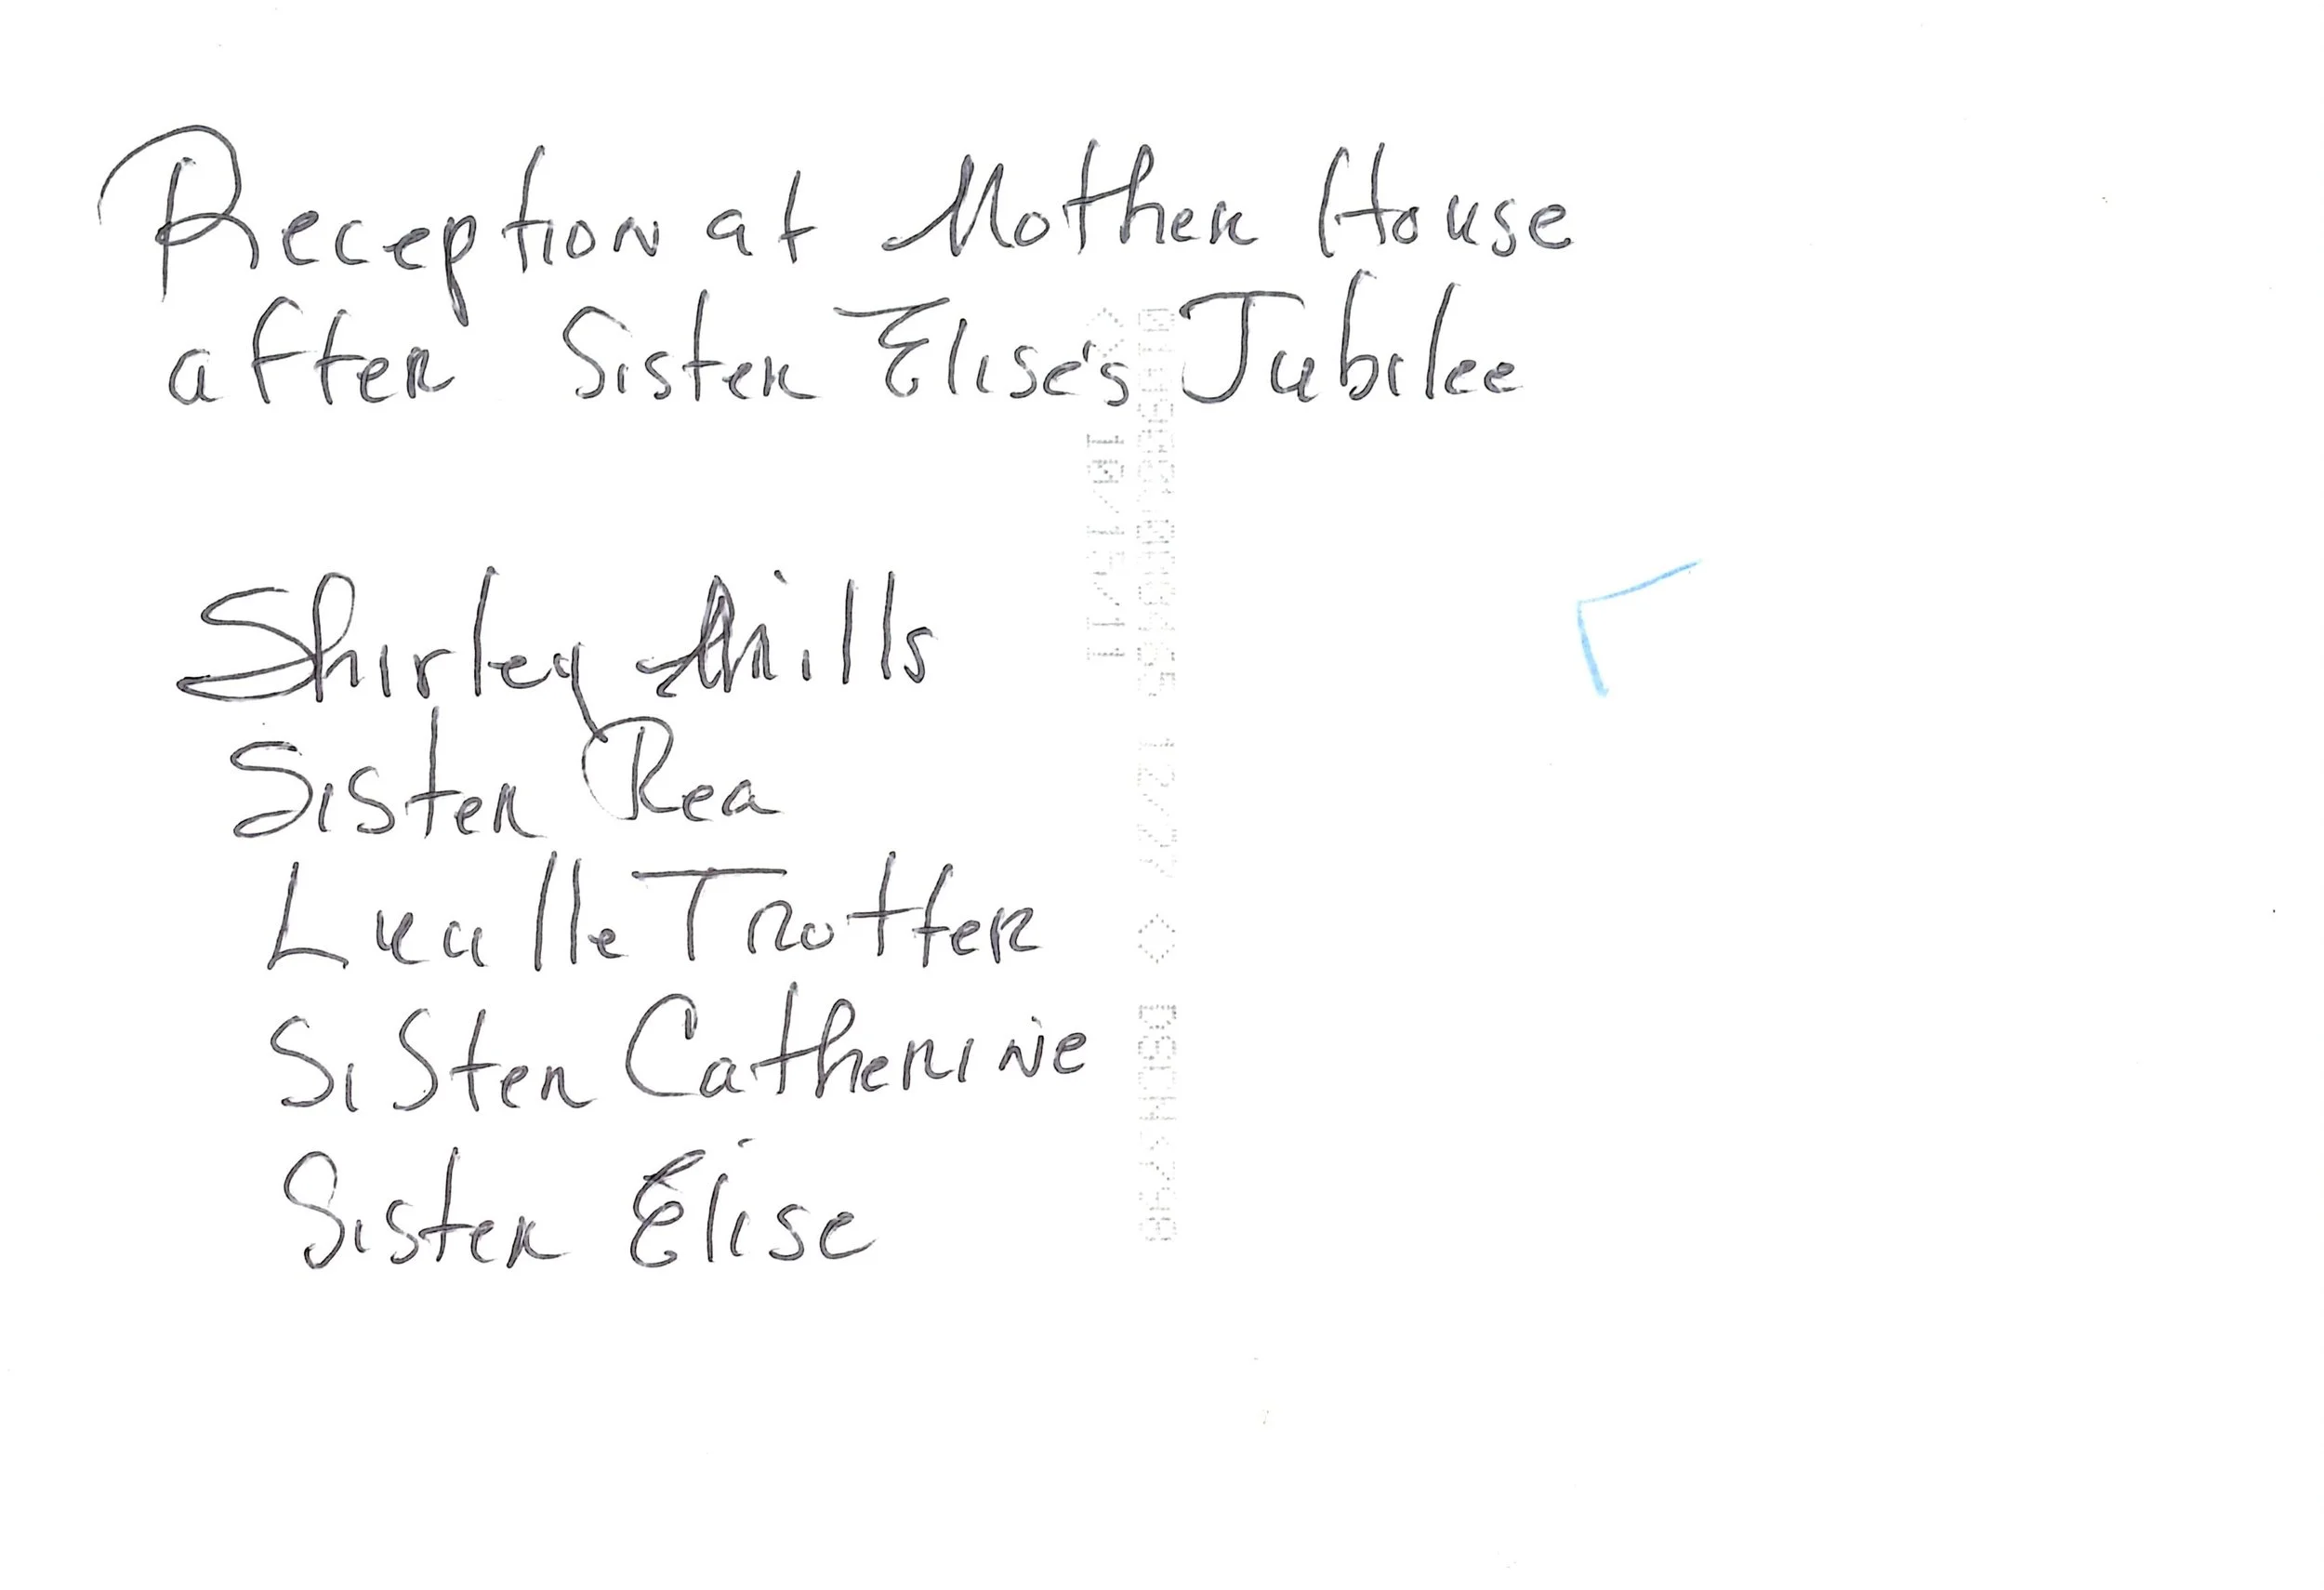 Reception at Mother House
after Sister Elise's Jubilee
Shirley Mills
Sister Rea
Lucille Trotter
Sister Catherine
Sister Elise